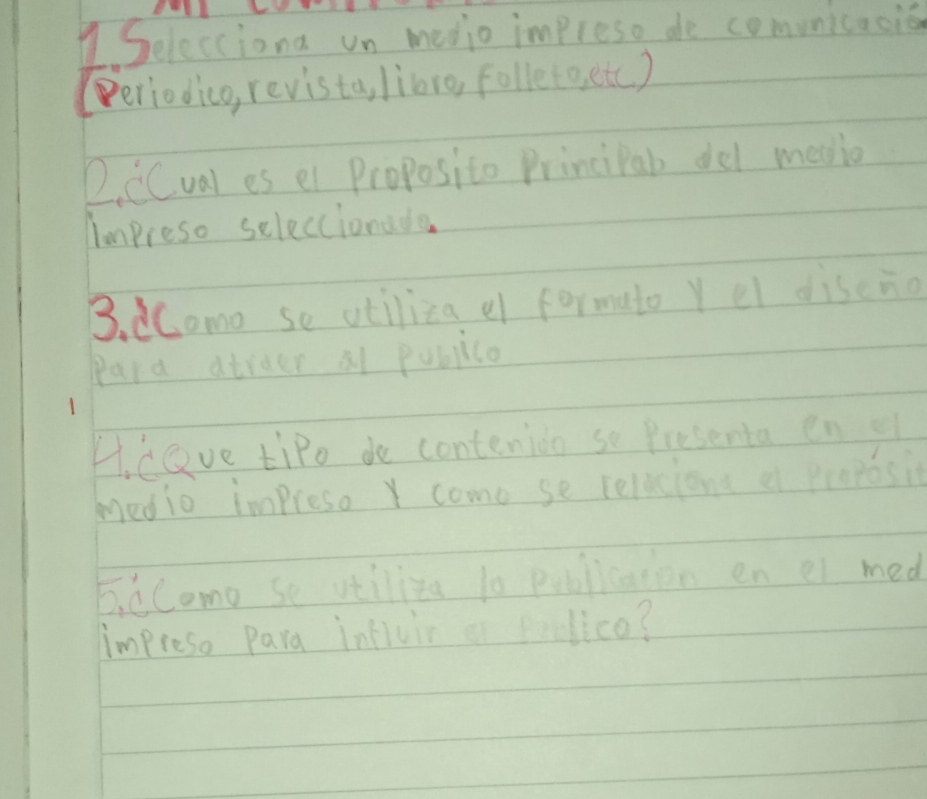 1. Selecciona un medio impreso de comunicación
(Periodico, revista, libro, folleto, etc)
2. ¿Cual es el Proposito Principab del medio
impreso seleccionado.
3. ¿Como se utiliza el formato Y el diseño
Para atraer al Publico
4. ¿Que tipo de contenido se Presenta en el
medio impreso Y como se relaciona el Propósit
5. ¿Como se utiliza la Publicación en el med
impreso Para influir